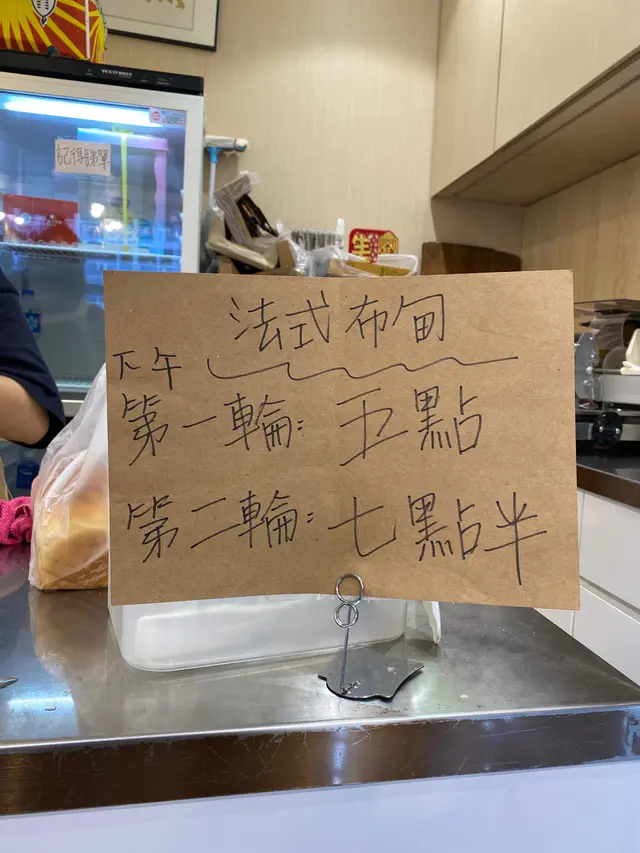 記得睇單
法式布甸
下午
第一輪：五點
第二輪：七點半